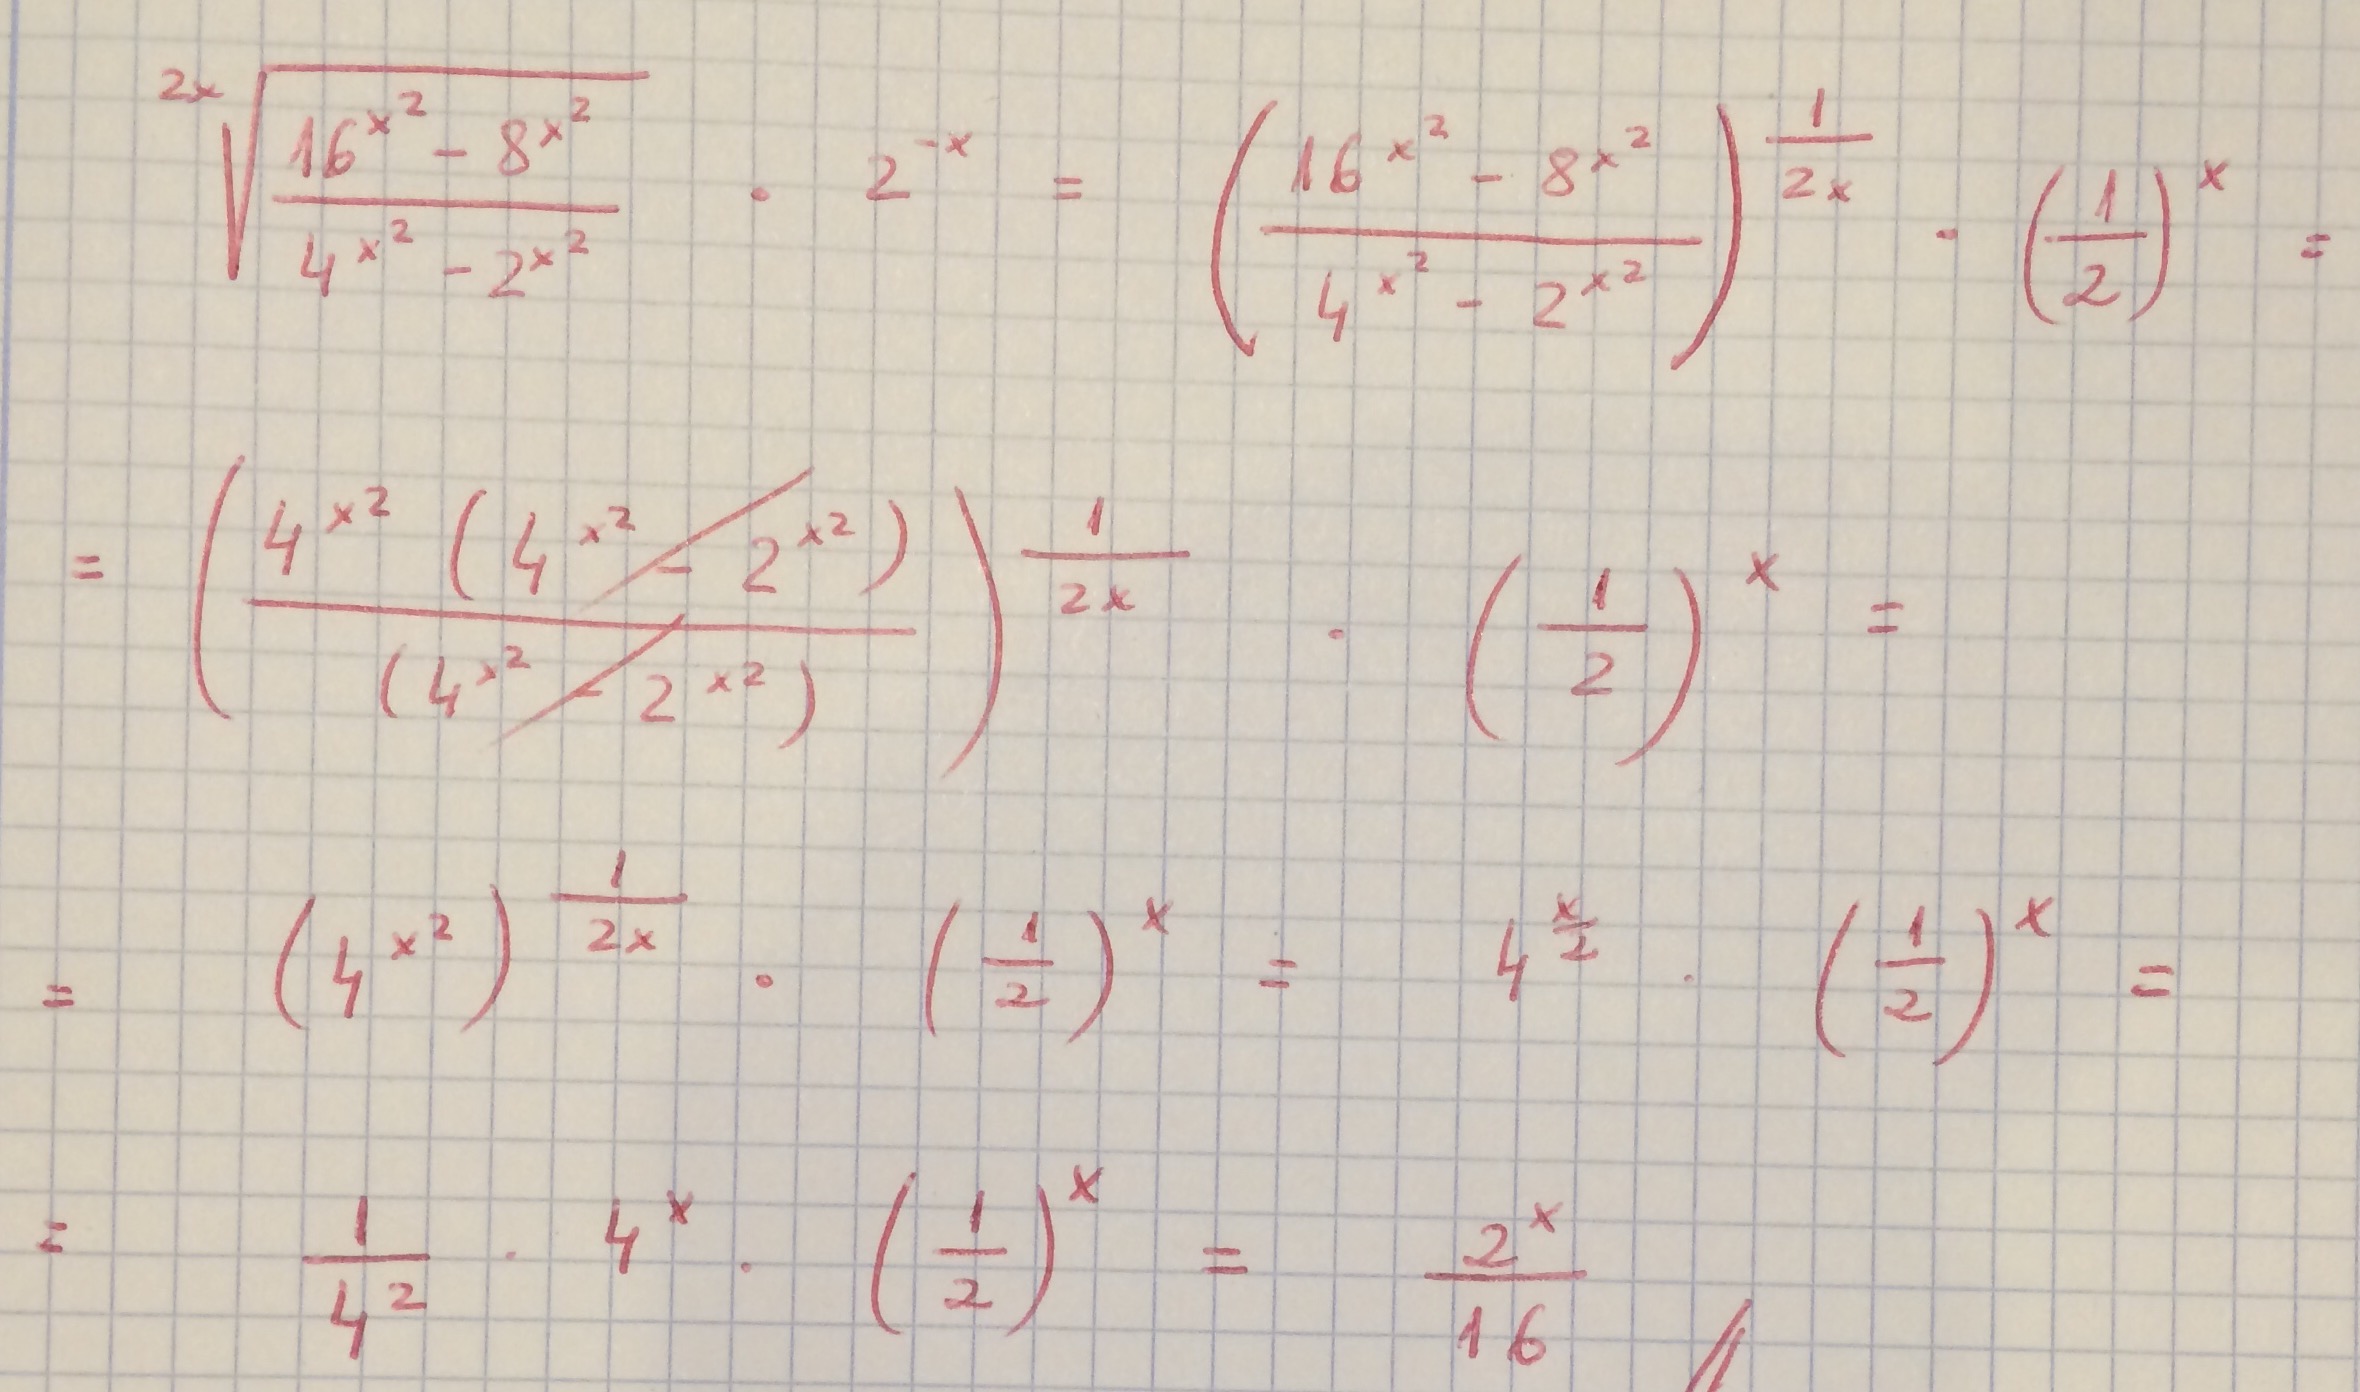 \sqrt[2x]{\frac{16^{x^2} - 8^{x^2}}{4^{x^2} - 2^{x^2}}} \cdot 2^{-x} = \left( \frac{16^{x^2} - 8^{x^2}}{4^{x^2} - 2^{x^2}} \right)^{\frac{1}{2x}} \cdot \left( \frac{1}{2} \right)^x =
= \left( \frac{4^{x^2} (4^{x^2} - 2^{x^2})}{(4^{x^2} - 2^{x^2})} \right)^{\frac{1}{2x}} \cdot \left( \frac{1}{2} \right)^x =
= (4^{x^2})^{\frac{1}{2x}} \cdot \left( \frac{1}{2} \right)^x = 4^{\frac{x}{2}} \cdot \left( \frac{1}{2} \right)^x =
= \frac{1}{4^2} \cdot 4^x \cdot \left( \frac{1}{2} \right)^x = \frac{2^x}{16}